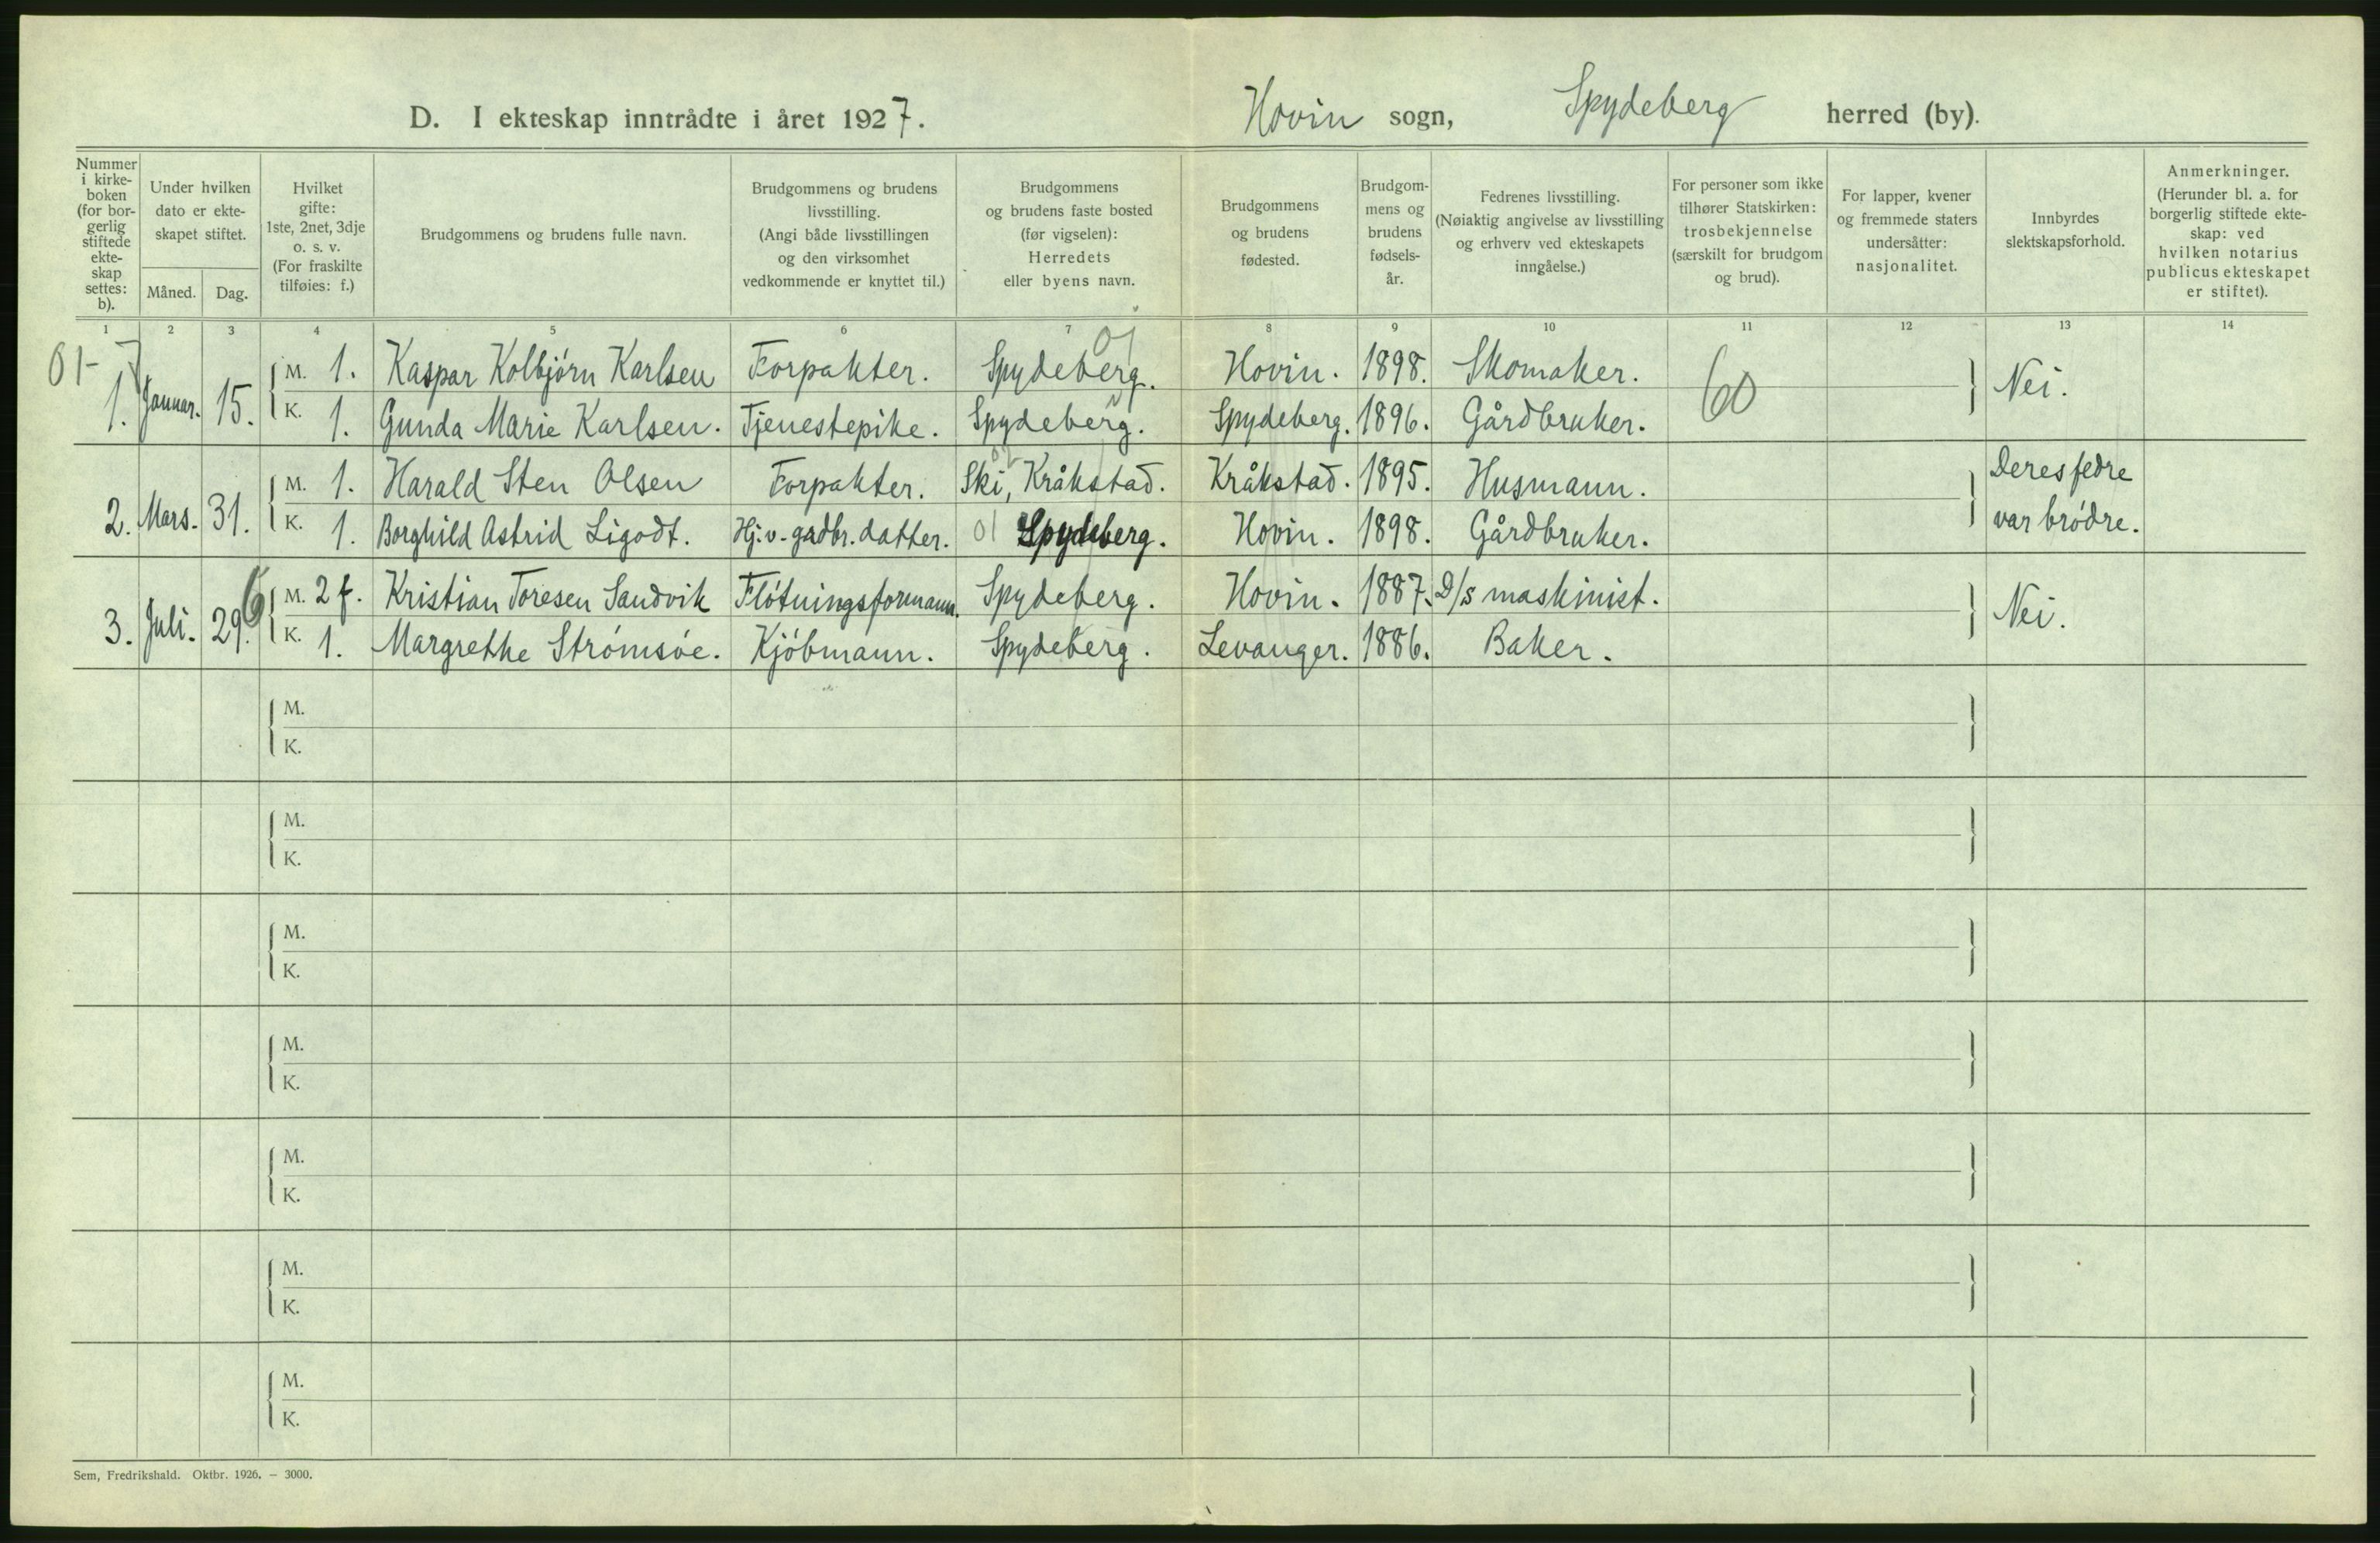 D. I ekteskap inntrådte i året 1927. Hovin sogn, Spydeberg herred (by).
Nummer i kirke-boken (for bor-gerlig stiftede ekte-skap settes: b).
Under hvilken dato er ekte-skapet stiftet.
Måned. Dag.
Hvilket gifte: 1ste, 2net, 3dje o. s. v. (For fraskilte tilføies: f.)
Brudgommens og brudens fulle navn.
Brudgommens og brudens livsstilling. (Angi både livsstillingen og den virksomhet vedkommende er knyttet til.)
Brudgommens og brudens faste bosted (før vigselen): Herredets eller byens navn.
Brudgommens og brudens fødested.
Brudgom-mens og brudens fødsels-år.
Fedrenes livsstilling. (Nøiaktig angivelse av livsstilling og erhverv ved ekteskapets inngåelse.)
For personer som ikke tilhører Statskirken: trosbekjennelse (særskilt for brudgom og brud).
For lapper, kvener og fremmede staters undersåtter: nasjonalitet.
Innbyrdes slektskapsforhold.
Anmerkninger. (Herunder bl. a. for borgerlig stiftede ekte-skap: ved hvilken notarius publicus ekteskapet er stiftet).
1 2 3 4 5 6 7 8 9 10 11 12 13 14
01-7 01
1. Januar. 15. M. 1. Kaspar Kolbjörn Karlsen Forpakter. Spydeberg. Hovin. 1898. Skomaker. 60 Nei.
K. 1. Gunda Marie Karlsen. Tjenestepike. Spydeberg. Spydeberg. 1896. Gårdbruker.
2. Mars. 31. M. 1. Harald Sten Olsen Forpakter. Ski, Kråkstad. Kråkstad. 1895. Husmann. Deres fedre
K. 1. Borghild Astrid Ligodt. Hj.v. gardbr. datter. 01 Spydeberg. Hovin. 1898. Gårdbruker. var brödre.
3. Juli. 29. 6 M. 2 f. Kristian Toresen Sandvik Flötningsformann. Spydeberg. Hovin. 1887. D/s maskinist. Nei.
K. 1. Margrethe Strömsöe. Kjöbmann. Spydeberg. Levanger. 1886. Baker.
M.
K.
M.
K.
M.
K.
M.
K.
M.
K.
M.
K.
M.
K.
Sem, Fredrikshald. Oktbr. 1926. – 3000.